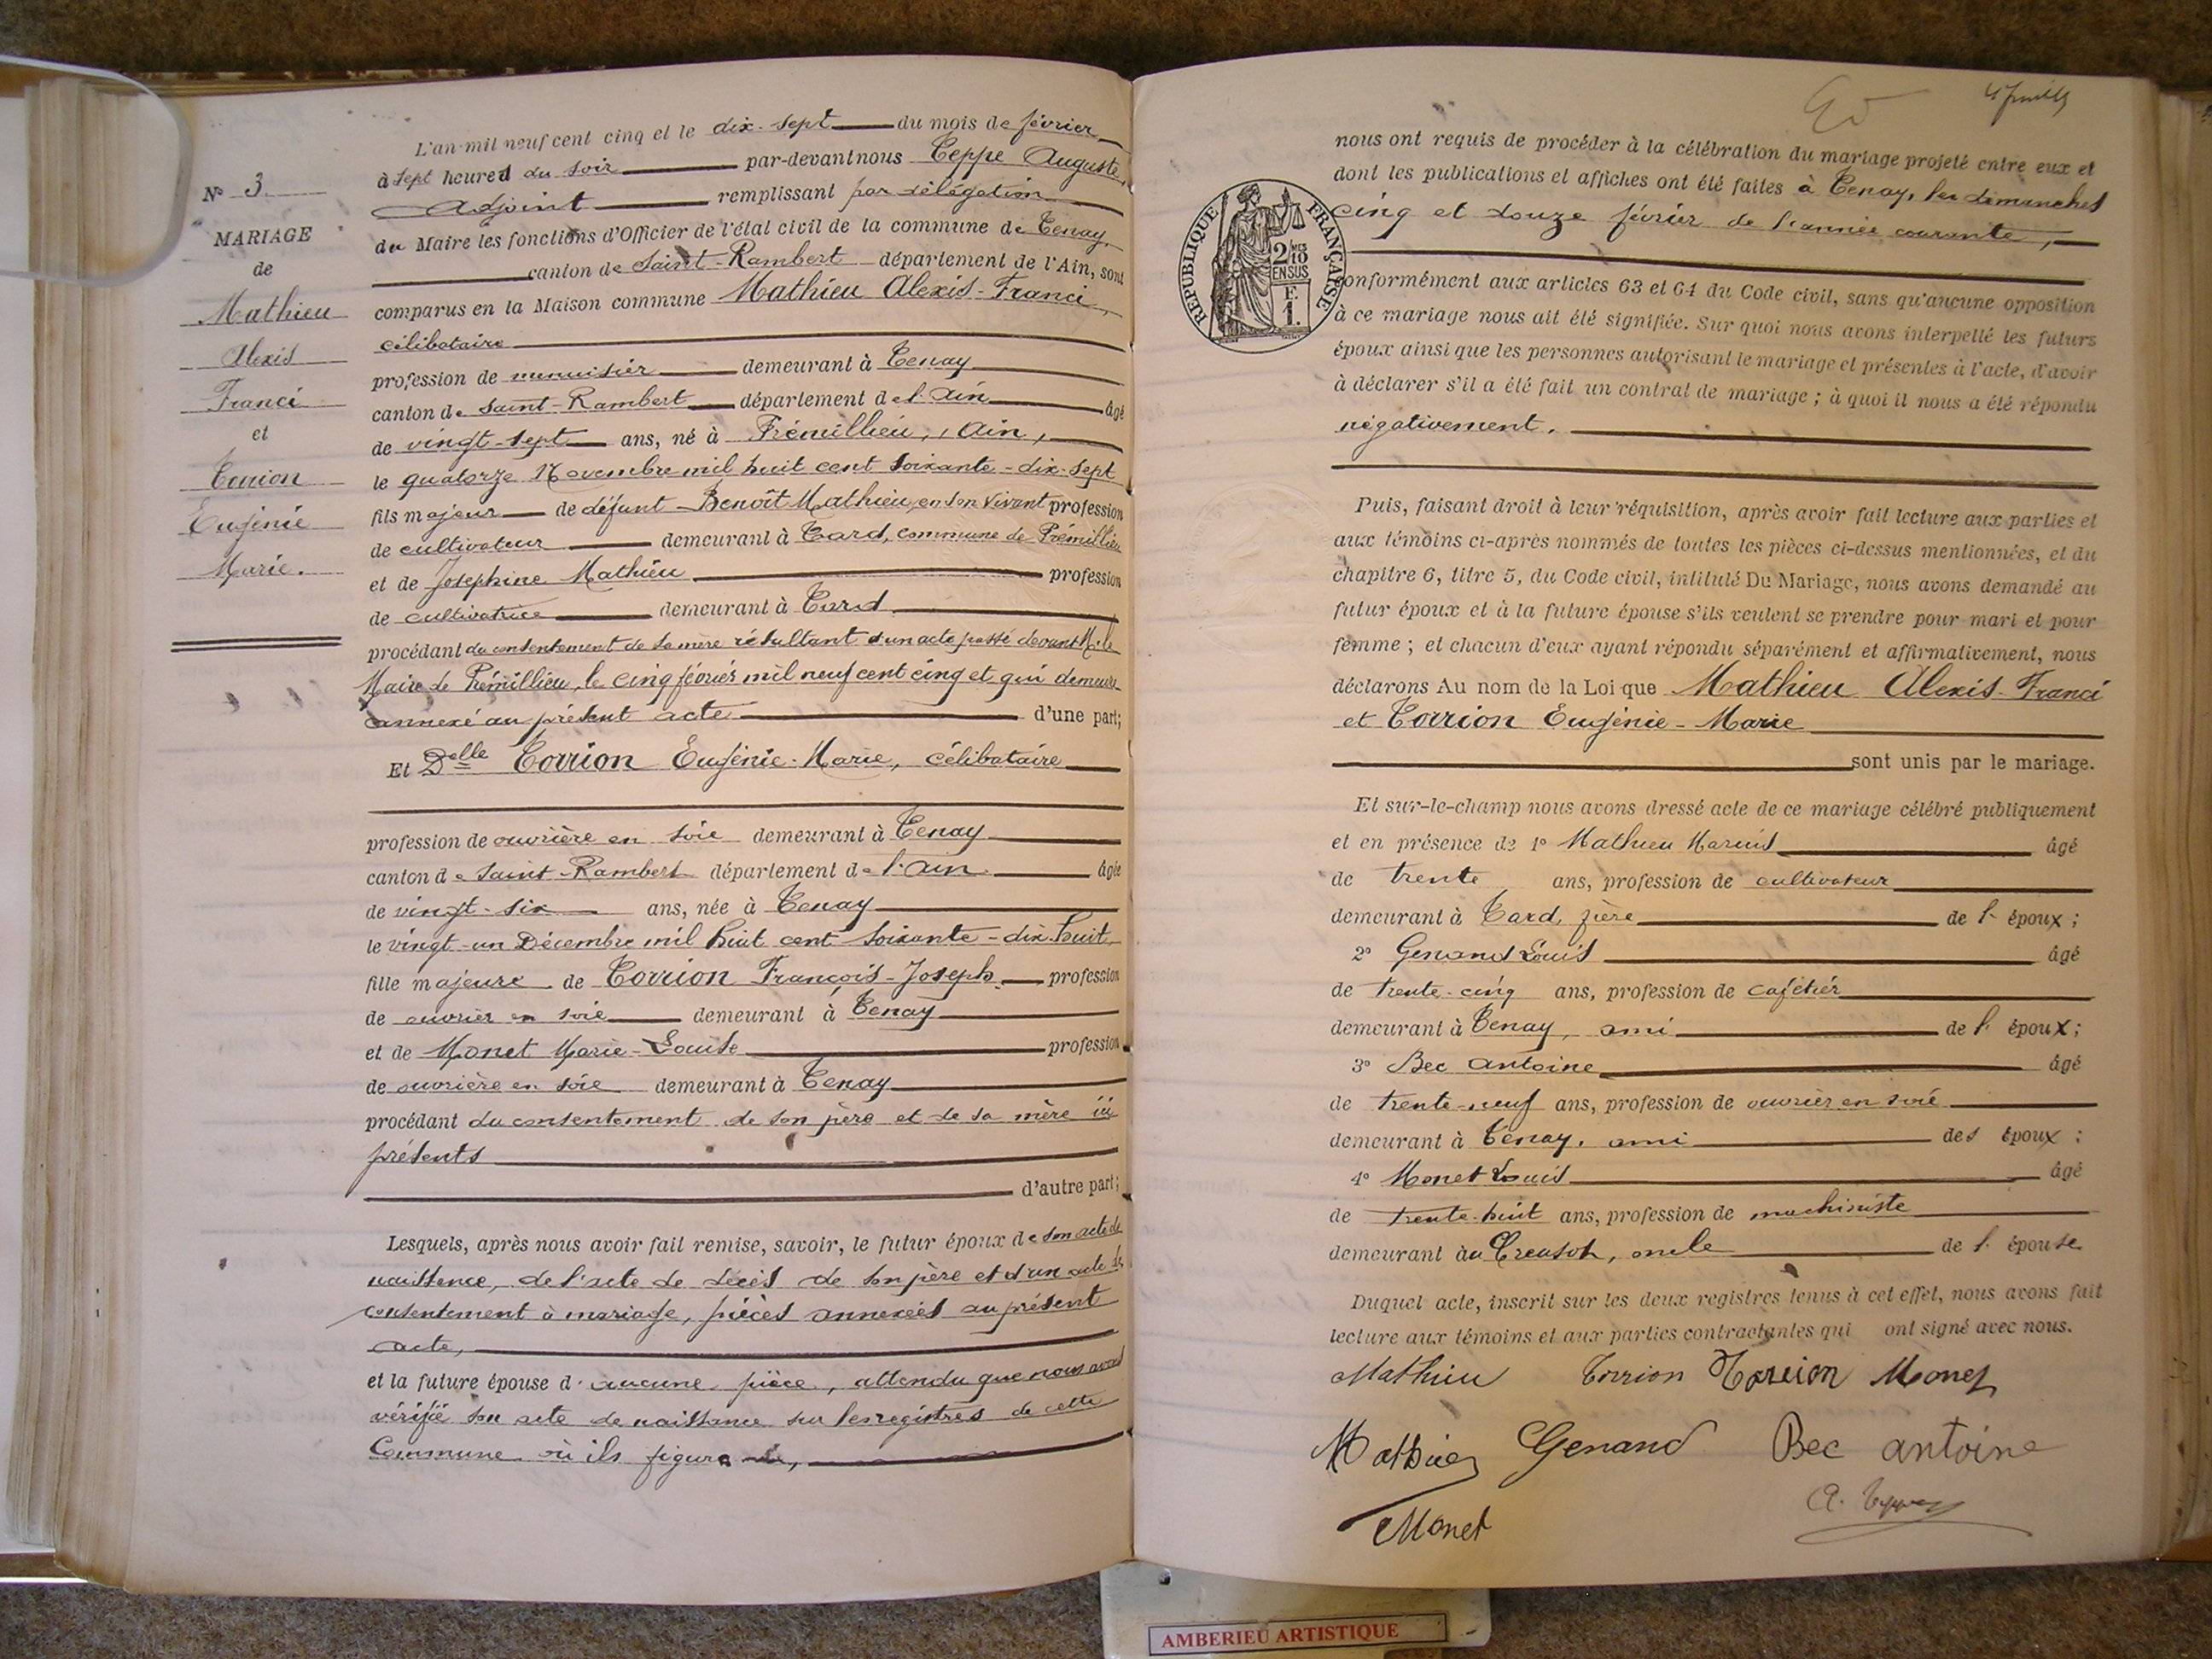 L'an mil neuf cent cinq et le dix-sept du mois de février
à sept heures du soir par-devant nous Teppe Auguste,
Adjoint remplissant par délégation
du Maire les fonctions d'Officier de l'état civil de la commune de Tenay,
canton de Saint-Rambert département de l'Ain, sont
comparus en la Maison commune Mathieu Alexis-Franci,
célibataire
profession de menuisier demeurant à Tenay
canton de Saint-Rambert département de l'Ain âgé
de vingt-sept ans, né à Prémillieu, (Ain)
le quatorze Novembre mil huit cent soixante-dix-sept
fils majeur de défunt Benoît Mathieu, en son vivant profession
de cultivateur demeurant à Tard, commune de Prémillieu
et de Josephine Mathieu profession
de cultivatrice demeurant à Tard
procédant du consentement de sa mère résultant d'un acte passé devant M. le
Maire de Prémillieu, le cinq février mil neuf cent cinq et qui demeure
annexé au présent acte d'une part;
Et Delle Torrion Eugénie-Marie, célibataire
profession de ouvrière en soie demeurant à Tenay
canton de Saint-Rambert département de l'Ain âgée
de vingt-six ans, née à Tenay
le vingt-un Décembre mil huit cent soixante-dix-huit
fille majeure de Torrion François-Joseph profession
de ouvrier en soie demeurant à Tenay
et de Monet Marie-Louise profession
de ouvrière en soie demeurant à Tenay
procédant du consentement de son père et de sa mère ici
présents
d'autre part;
Lesquels, après nous avoir fait remise, savoir, le futur époux de son acte de
naissance, de l'acte de décès de son père et d'un acte de
consentement à mariage, pièces annexées au présent
acte,
et la future épouse d'aucune pièce, attendu que nous avons
vérifié son acte de naissance sur les registres de cette
Commune où ils figure
N° 3
MARIAGE
de
Mathieu
Alexis
Franci
et
Torrion
Eugénie
Marie.
nous ont requis de procéder à la célébration du mariage projeté entre eux et
dont les publications et affiches ont été faites à Tenay, les dimanches
cinq et douze février de l'année courante,
conformément aux articles 63 et 64 du Code civil, sans qu'aucune opposition
à ce mariage nous ait été signifiée. Sur quoi nous avons interpellé les futurs
époux ainsi que les personnes autorisant le mariage et présentes à l'acte, d'avoir
à déclarer s'il a été fait un contrat de mariage; à quoi il nous a été répondu
négativement.
Puis, faisant droit à leur réquisition, après avoir fait lecture aux parties et
aux témoins ci-après nommés de toutes les pièces ci-dessus mentionnées, et du
chapitre 6, titre 5, du Code civil, intitulé Du Mariage, nous avons demandé au
futur époux et à la future épouse s'ils veulent se prendre pour mari et pour
femme; et chacun d'eux ayant répondu séparément et affirmativement, nous
déclarons Au nom de la Loi que Mathieu Alexis-Franci
et Torrion Eugénie-Marie
sont unis par le mariage.
Et sur-le-champ nous avons dressé acte de ce mariage célébré publiquement
et en présence de 1° Mathieu Marius âgé
de trente ans, profession de cultivateur
demeurant à Tard, frère de l'époux;
2° Genand Louis âgé
de trente-cinq ans, profession de cafetier
demeurant à Tenay, ami de l'époux;
3° Bec Antoine âgé
de trente-neuf ans, profession de ouvrier en soie
demeurant à Tenay, ami des époux;
4° Monet Louis âgé
de trente-huit ans, profession de machiniste
demeurant au Creusot, oncle de l'épouse
Duquel acte, inscrit sur les deux registres tenus à cet effet, nous avons fait
lecture aux témoins et aux parties contractantes qui ont signé avec nous.
Mathieu Torrion Torrion Monet
Mathieu Genand Bec antoine
Monet A. Teppe
RÉPUBLIQUE FRANÇAISE
2/10 MES
EN SUS
F.
1.
AMBERIEU ARTISTIQUE